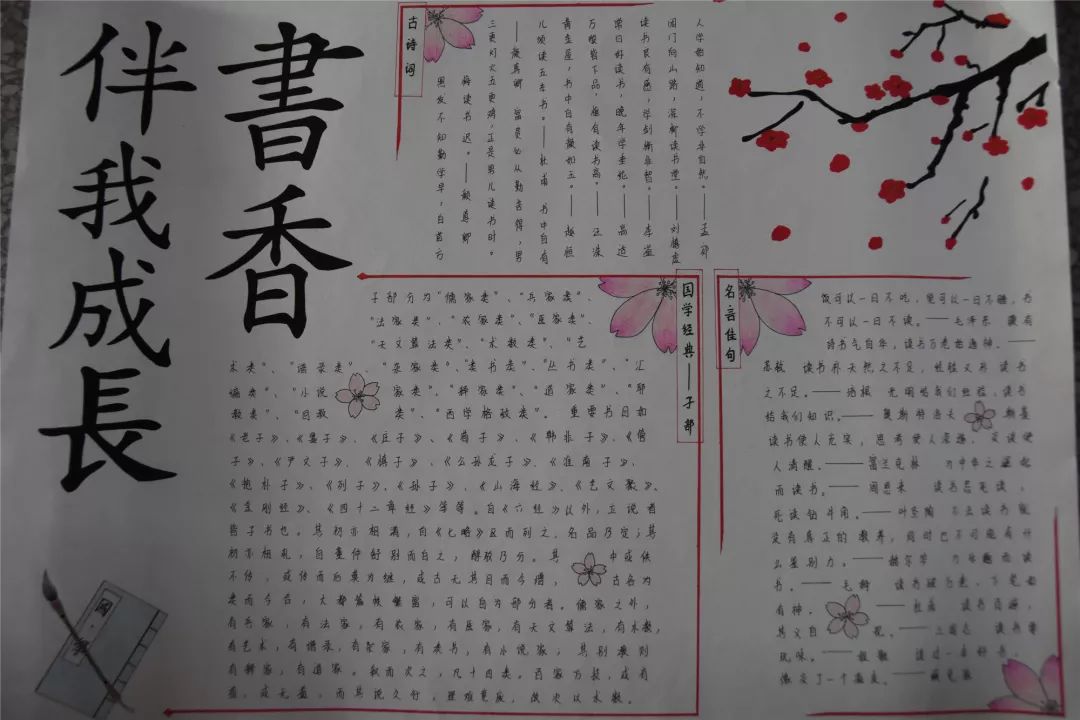 書香
伴我成長
古诗词
人学始知道，不学非自然。——孟郊
闭门向山路，深柳读书堂。——刘慎虚
读书良有感，学剑惭非智。——李益
常日好读书，晚年学垂纶。——高适
万般皆下品，惟有读书高。——汪洙
黄金屋，书中自有颜如玉。——赵恒
儿须读五车书。——杜甫 书中自有
——颜真卿 富贵必从勤苦得，男
三更灯火五更鸡，正是男儿读书时。
悔读书迟。——颜真卿
黑发不知勤学早，白首方
国学经典——子部
子部分为"儒家类"、"兵家类"、
"法家类"、"农家类"、"医家类"、
"天文算法类"、"术数类"、"艺
术类"、"谱录类"、"杂家类"、"类书类"、"丛书类"、"汇
编类"、"小说家类"、"释家类"、"道家类"、"耶
教类"、"回教类"、"西学格致类"。 重要书目如
《老子》、《墨子》、《庄子》、《荀子》、《韩非子》、《管
子》、《尹文子》、《慎子》、《公孙龙子》、《淮南子》、
《抱朴子》、《列子》、《孙子》、《山海经》、《艺文类》、
《金刚经》、《四十二章经》等等。自《六经》以外，立说者
皆子书也。其初亦相淆，自《七略》区而列之，名品乃定；其
初亦相轧，自董仲舒别而白之，醇驳乃分。其中或佚
不传，或传而后莫为继，或古无其目而今增，古各为
类而今合，大都篇帙繁富，可以自为部分者。儒家之外，
有兵家，有法家，有农家，有医家，有天文算法，有术数，
有艺术，有谱录，有杂家，有类书，有小说家，其别教则
有释家，有道家。叙而次之，凡十四类。
名言佳句
饭可以一日不吃，觉可以一日不睡，书
不可以一日不读。——毛泽东 腹有
诗书气自华，读书万卷始通神。——
苏轼 读书补天然之不足，经验又补读书
之不足。——培根 光明给我们经验，读书
给我们知识。——奥斯特洛夫
读书使人充实，思考使人深邃，交谈使
人清醒。——富兰克林 为中华之崛起
而读书。——周恩来 读书忌死读，
死读钻牛角。——叶圣陶 不去读书就
没有真正的教养，同时也不可能有什
么鉴别力。——赫尔岑 为乐趣而读
书。——毛姆 读书破万卷，下笔如
有神。——杜甫 读书百遍，
其义自现。——三国志 读书要
玩味。——程颢 读过一本好书，
像交了一个益友。——臧克家